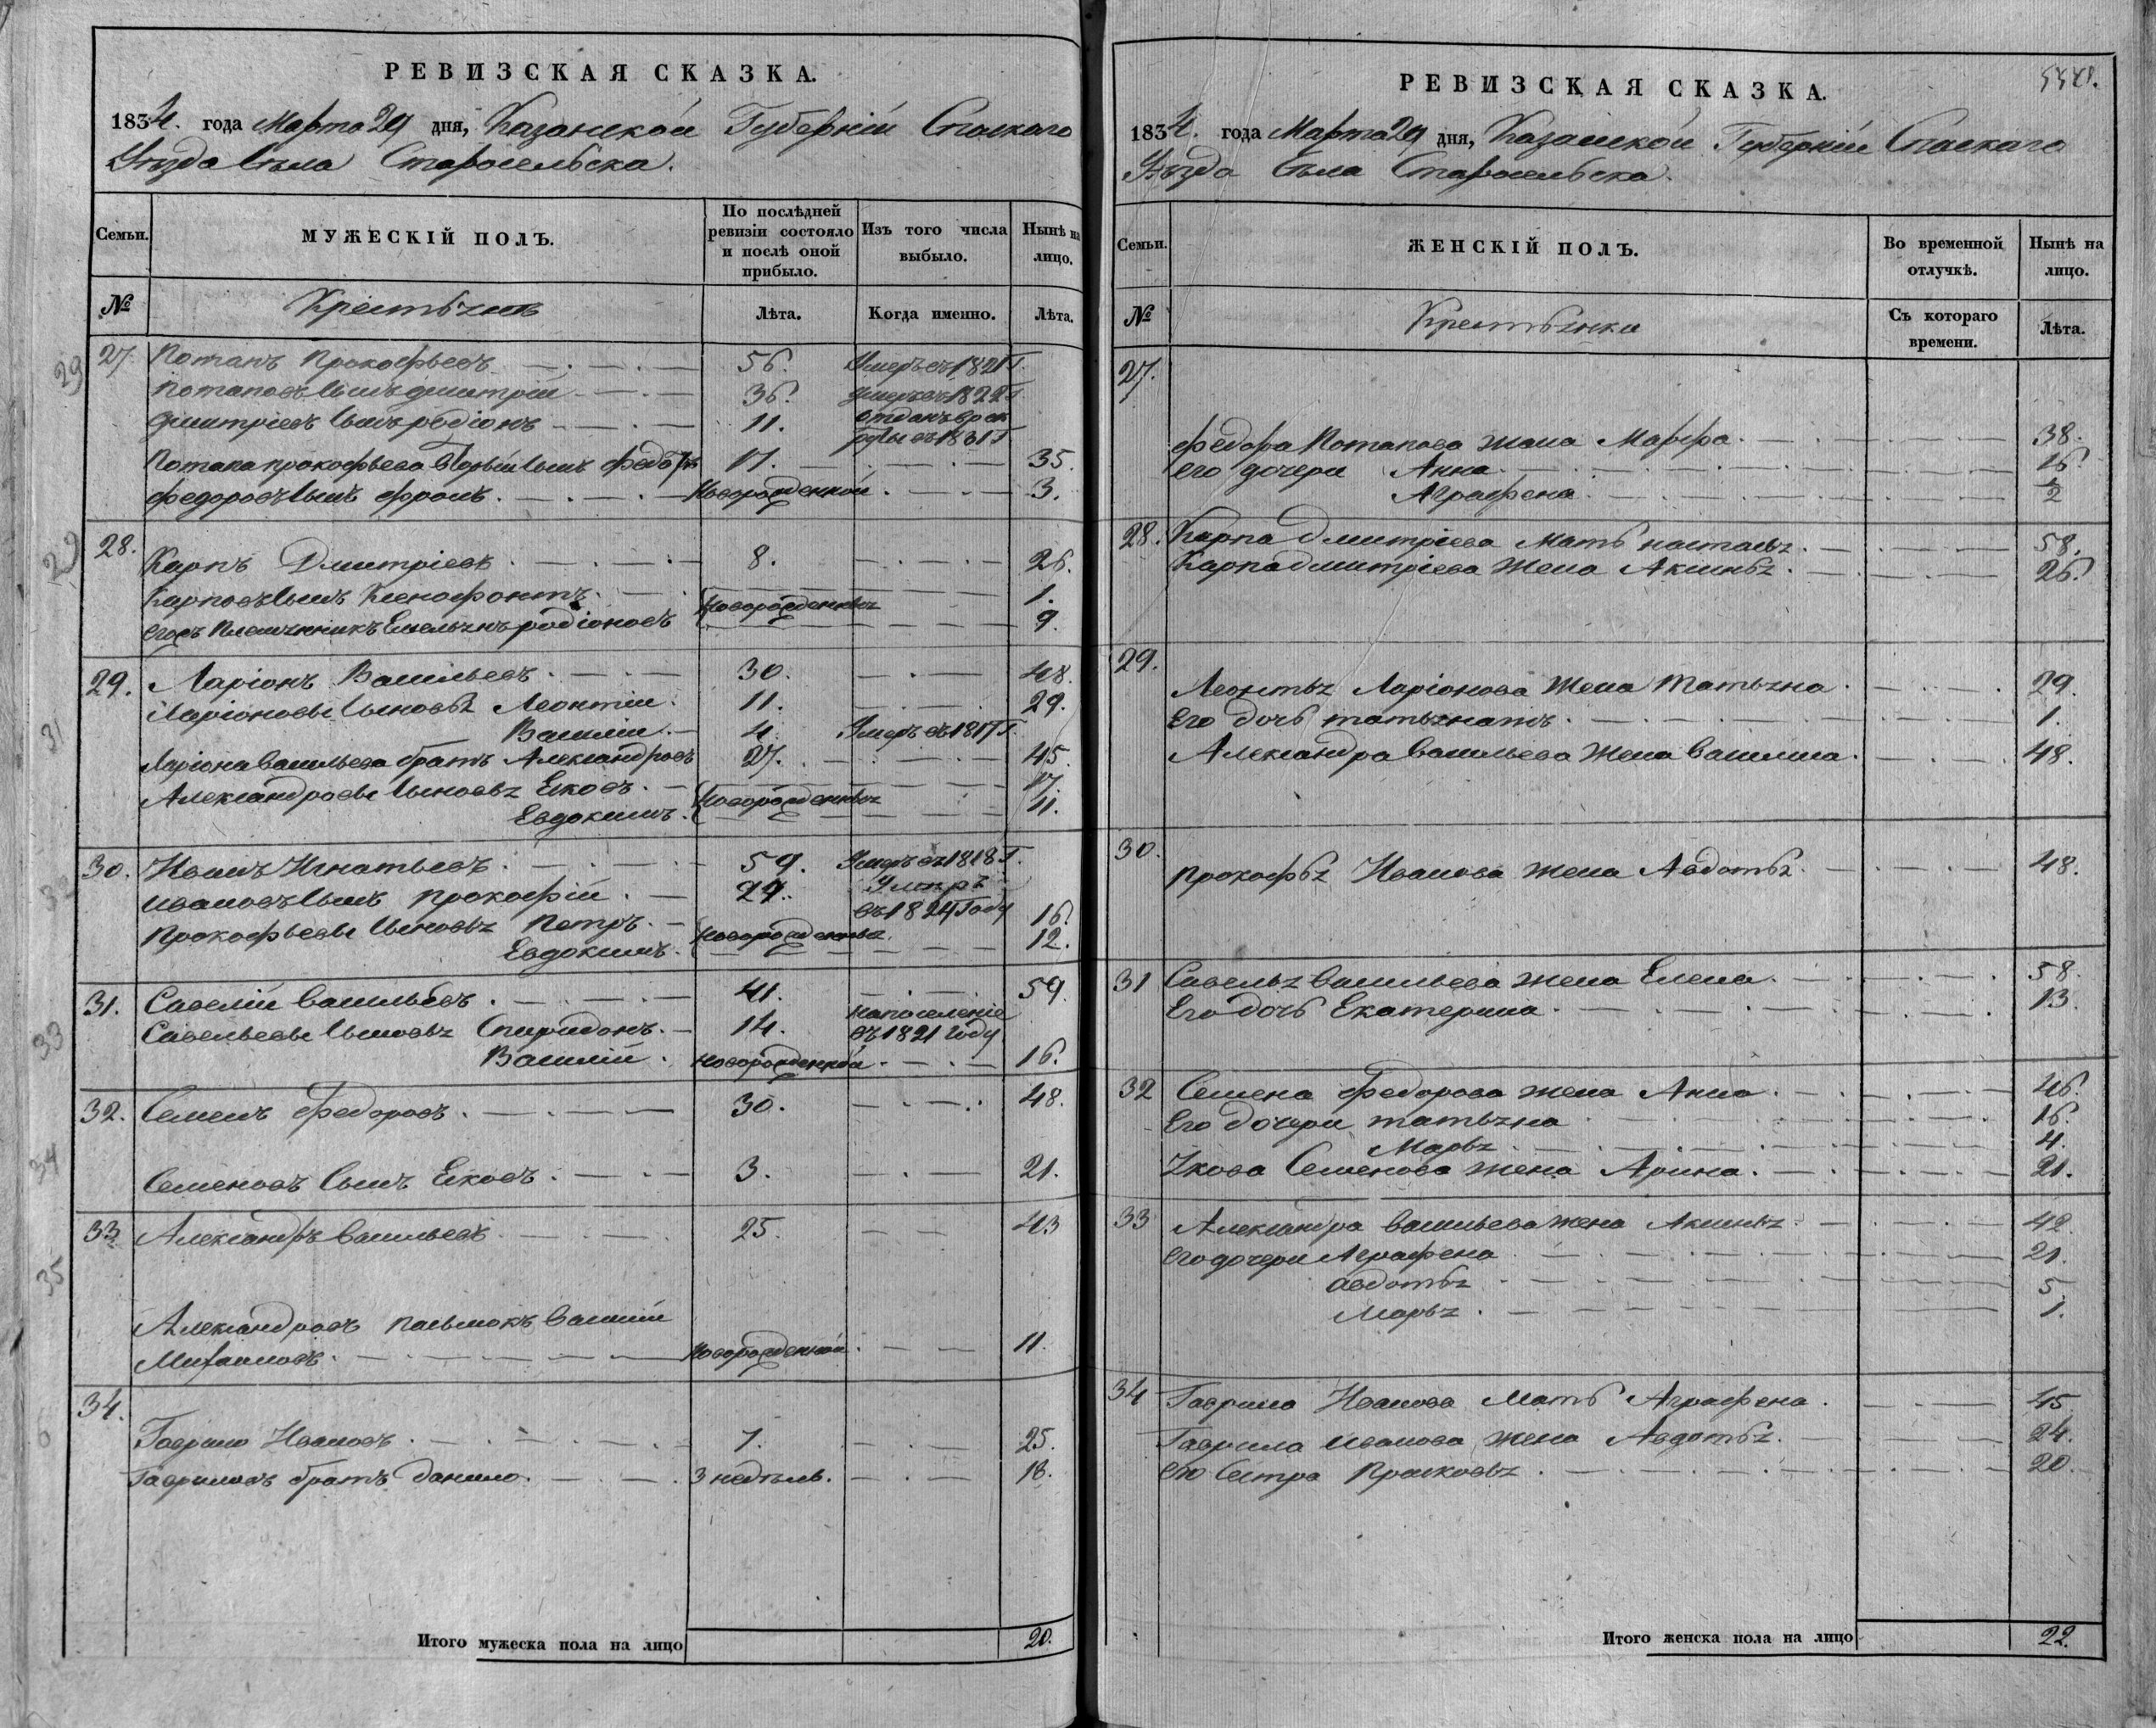 РЕВИЗСКАЯ СКАЗКА.
1834. года Марта 29 дня, Казанской Губернiи Спаскаго
Уезда Села Старосельска.
Семьи. МУЖЕСКIЙ ПОЛЪ. По послѣдней ревизiи состояло и послѣ оной прибыло. Изъ того числа выбыло. Нынѣ на лицо.
№ Крестьяне Лѣта. Когда именно. Лѣта.
27. Потапъ Прокофьевъ 56. Умеръ въ 1821 Г.
Потаповъ сынъ Дмитрiй 36. Умеръ въ 1822 Г
Дмитрiевъ сынъ родiонъ 11. отданъ врек
руты въ 1831 Г
Потапа прокофьева вторый сынъ федоръ 17. 35.
федоровъ сынъ фролъ Новорожденной 3.
28. Карпъ Дмитрiевъ 8. 26.
Карповъ сынъ Ксенофонтъ Новорожденныя 1.
Егоже Племянникъ Емельянъ родiоновъ 9.
29. Ларiонъ Васильевъ 30. 48.
Ларiоновы сыновья Леонтiи 11. 29.
Василiи 4. Умеръ въ 1817 Г.
Ларiона васильева братъ Александровъ 27. 45.
Александровы сыновья Яковъ Новорожденныя 17.
Евдокимъ 11.
30. Иванъ Игнатьевъ 59. Умеръ въ 1818 Г.
ивановъ сынъ прокофiй 29. Умеръ
въ 1824 Году
Прокофьевы сыновья Петръ Новорожденныя 16.
Евдокимъ 12.
31. Савелiи васильевъ 41. 59.
Савельевы сыновья Спиридонъ 14. напоселенiе
въ 1821 году
Василiй новорожденной 16.
32. Семенъ Федоровъ 30. 48.
Семеновъ Сынъ Яковъ 3. 21.
33 Александръ васильевъ 25. 43
Александровъ пасынокъ василiй
Михаиловъ Новорожденной 11
34. Гаврило Ивановъ 7. 25.
Гавриловъ братъ данило 3 недѣль. 18.
Итого мужеска пола на лицо 20.
РЕВИЗСКАЯ СКАЗКА.
1834. года Марта 29 дня, Казанской Губернiи Спаскаго
Уѣзда Села Старосельска.
Семьи. ЖЕНСКIЙ ПОЛЪ. Во временной отлучкѣ. Нынѣ на лицо.
№ Крестьянки Съ котораго времени. Лѣта.
27.
федора Потапова жена Марфа 38.
его дочери Анна 16.
Аграфена 2
28. Карпа дмитрiева Мать настасья 58.
Карпа дмитрiева жена Аксинья 26.
29. Леонтья Ларiонова жена татьяна 29.
Его дочь татьяна 1.
Александра васильева жена василиса 48.
30. Прокофья Иванова жена Авдотья 48.
31 Савелья васильева жена Елена 58.
Его дочь Екатерина 13.
32 Семена Федорова жена Анна 46.
Его дочери татьяна 16.
Марья 4.
Якова Семенова жена Арина 21.
33 Александра васильева жена Аксинья 42.
его дочери Аграфена 21.
авдотья 5
Марья 1.
34 Гаврила Иванова Мать Аграфена 45
Гаврила иванова жена Авдотья 24.
его Сестра Прасковья 20.
Итого женска пола на лицо 22.